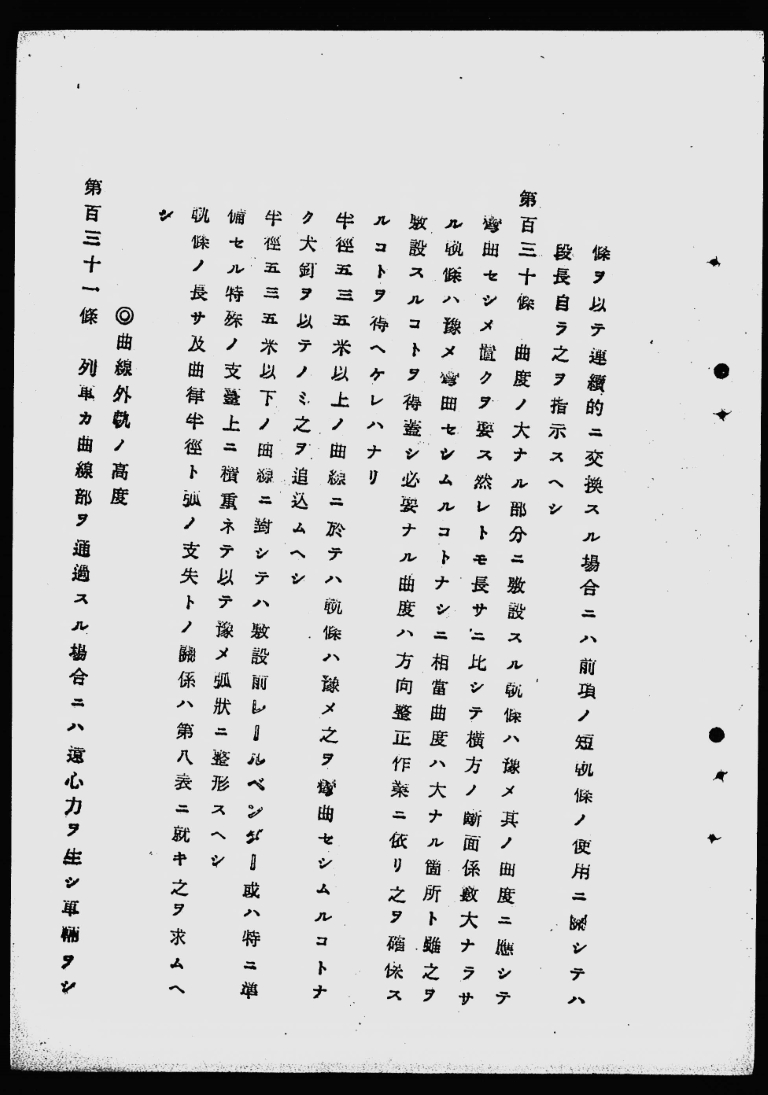 條ヲ以テ連續的ニ交換スル場合ニハ前項ノ短軌條ノ使用ニ關シテハ
段長自ラ之ヲ指示スヘシ
第百三十條　曲度ノ大ナル部分ニ敷設スル軌條ハ豫メ其ノ曲度ニ應シテ
彎曲セシメ置クヲ要ス然レトモ長サニ比シテ橫方ノ斷面係數大ナラサ
ル軌條ハ豫メ彎曲セシムルコトナシニ相當曲度ハ大ナル箇所ト雖之ヲ
敷設スルコトヲ得蓋シ必要ナル曲度ハ方向整正作業ニ依リ之ヲ確保ス
ルコトヲ得ヘケレハナリ
半徑五三五米以上ノ曲線ニ於テハ軌條ハ豫メ之ヲ彎曲セシムルコトナ
ク犬釘ヲ以テノミ之ヲ追込ムヘシ
半徑五三五米以下ノ曲線ニ對シテハ敷設前レールベンダー或ハ特ニ準
備セル特殊ノ支臺上ニ積重ネテ以テ豫メ弧狀ニ整形スヘシ
軌條ノ長サ及曲律半徑ト弧ノ支失トノ關係ハ第八表ニ就キ之ヲ求ムヘ
シ
◎曲線外軌ノ高度
第百三十一條　列車カ曲線部ヲ通過スル場合ニハ遠心力ヲ生シ車輛ヲシ